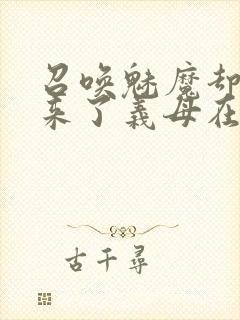 召唤魅魔却
来了义母在
古千寻